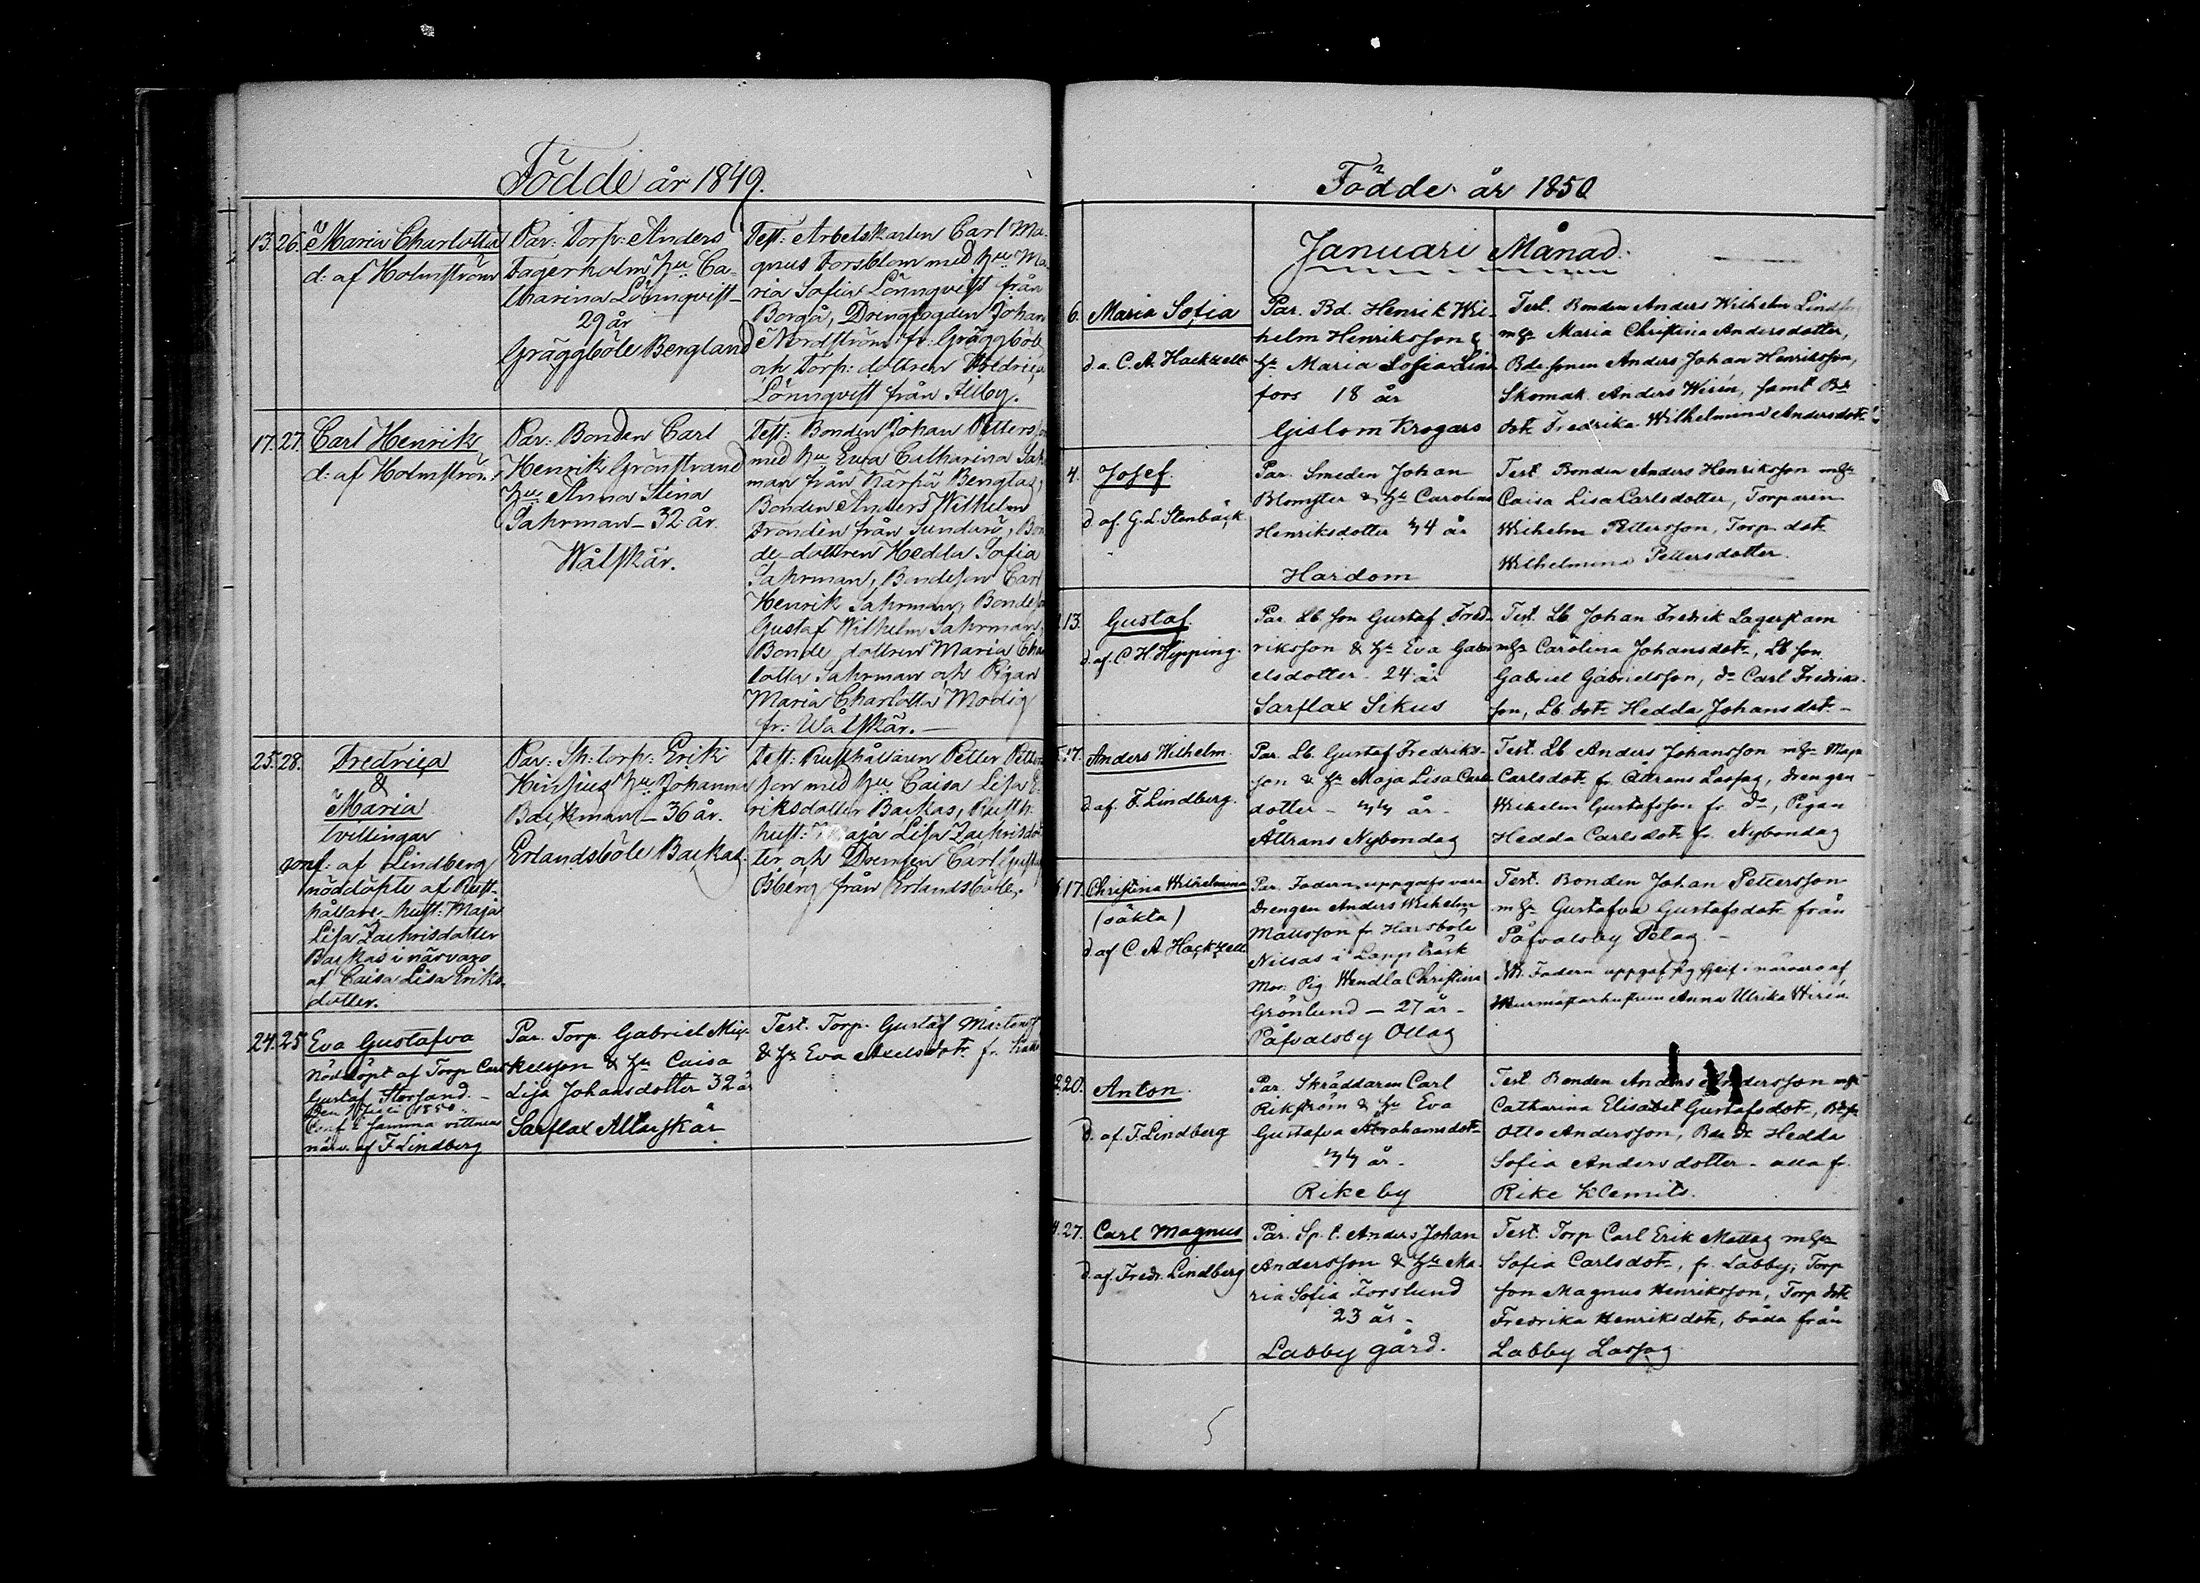 Födde år 1849.
13. 26. Maria Charlotta
d: af Holmström
Par: Torp: Anders
Fagerholm, hu Ca-
tharina Lönnqvist
29 år
Gräggböle Bergland
Test: Arbetskarlen Carl Ma-
gnus Forsblom med hu Ma-
ria Sofia Lönnqvist från
Borgå, Drengfogden Johan
Nordström fr: Gräggböle
och Torp: dottren Fredrica
Lönnqvist från Illby.
17. 27. Carl Henrik
d: af Holmström
Par: Bonden Carl
Henrik Grönstrand
hu Anna Stina
Sahrman – 32 år.
Wålskär.
Test: Bonden Johan Petters
med hu Eva Catharina
man från Särfsä Bengtas,
Bonden Anders Wilhelm
från Sundarö, Bon
de dottren Hedda Sofia
Sahrman, Bondeson Carl
Henrik Sahrman, Bondeson
Gustaf Wilhelm Sahrman,
Bonde dottren Maria Char
lotta Sahrman och Pigan
Maria Charlotta Modig
fr: Wålskär.
25. 28. Fredrica
&
Maria
tvillingar
conf: af Lindberg
nöddöpte af Rust-
hållare hust: Maja
Lisa Zachrisdotter
Backas i närvaro
af Caisa Lisa Eriks-
dotter.
Par: Sk: torp: Erik
hu Johanna
Backman – 36 år.
Erlandsböle Backas.
Test: Rusthållaren Petter Petters
son med hu Caisa Lisa E-
riksdotter Backas, Rusth:
hust: Maja Lisa Zachrisdot
ter och Drengen Carl Gustaf
Öberg från Erlandsböle.
24. 25 Eva Gustafva
Nöddöpt af Torp Carl
Gustaf Storsand. –
Den 1850.
Conf i samma vittnens
närv. af F Lindberg
Par. Torp. Gabriel Mic-
kelsson & hu Caisa
Lisa Johansdotter 32 år
Sarflax Altarskär
Test. Torp. Gustaf Mårtens
& hu Eva Axelsdotr fr.
Födde år 1850
Januari Månad.
6. Maria Sofia
d. a. C. A. Hackzell
Par. Bd. Henrik Wil-
helm Henriksson &
hu Maria Sofia Lind
fors 18 år
Gislom Krogars
Test. Bonden Anders Wilhelm Lindfors
mhu Maria Christina Andersdotter,
Bdesonen Anders Johan Henriksson,
Skomak. Anders Wirén, samt Bde
dotr Fredrika Wilhelmina Andersdotr
4. Josef.
d af. G. L. Stenbäck
Par. Smeden Johan
Blomster & hu Carolina
Henriksdotter 44 år
Hardom
Test Bonden Anders Henriksson mhu
Caisa Lisa Carlsdotter, Torparen
Wilhelm Pettersson, Torp dotr
Wilhelmina Pettersdotter.
13. Gustaf.
d. af. C H Hipping.
Par. Lb son Gustaf Fred-
riksson & hu Eva Gabri
elsdotter 24 år
Sarflax Sikus
Test. Lb Johan Fredrik Lagerstam
mhu Carolina Johansdotr, Lb son
Gabriel Gabrielsson, do Carl Fredriks-
son, Lb. dotr Hedda Johansdotr –
17. Anders Wilhelm
d. af. F. Lindberg.
Par. Lb. Gustaf Fredriks-
son & hu Maja Lisa Carls
dotter – 44 år.
Åttrans Nybondas
Test. Lb Anders Johansson mhu Maja
Carlsdotr fr. Åttrans Lassas, drengen
Wilhelm Gustafsson fr do, Pigan
Hedda Carlsdotr fr. Nybondas
17. Christina Wilhelmina
(oäkta)
d af C. A. Hackzell
Par. Fadern uppgafs vara
Drengen Anders Wilhelm
Mattsson fr Harsböle
Nilsas i Lappträsk
Mor: Pig Wendla Christina
Grönlund – 27 år.
Påfvalsby Ollas
Test. Bonden Johan Pettersson
mhu Gustafva Gustafsdotr från
Påfvalsby Pelas –
NB. Fadern uppgaf sig sjelf i närvaro af
Murmästarhustrun Anna Ulrika Wirén.
20. Anton.
d. af. F. Lindberg
Par. Skräddaren Carl
Rikström & hu Eva
Gustafva Abrahamsdotr
44 år.
Rikeby
Test. Bonden Anders Andersson mhu
Catharina Elisabet Gustafsdotr, Bdeson
Otto Andersson, Bde dr Hedda
Sofia Andersdotter – alla fr.
Rike Klemits.
27. Carl Magnus
d. af. Fredr. Lindberg
Par. Sp. t. Anders Johan
Andersson & hu Ma-
ria Sofia Forslund
23 år –
Labby gård.
Test. Torp Carl Erik Mattas mhu
Sofia Carlsdotr, fr. Labby; Torp
son Magnus Henriksson, Torp dotr
Fredrika Henriksdotr, båda från
Labby Lassas.